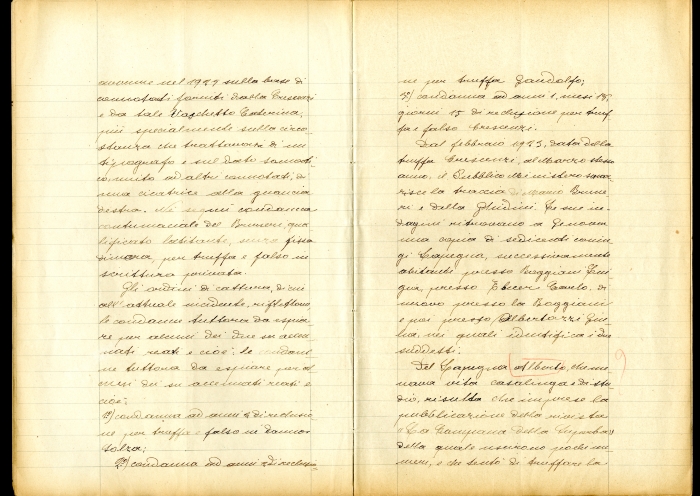 avvenne nel 1923 sulla base di
connotati forniti dalla Crescenzi
e da tale Vacchetto Caterina,
più specialmente sulla circo-
stanza che trattavasi di un
tipografo e sul dato somati-
co unito ad altri connotati, di
una cicatrice alla guancia
destra. Ne seguì condanna
contumaciale del Bruneri, qua-
lificato latitante, senza fissa
dimora, per truffa e falso in
scrittura privata.
Gli ordini di cattura, di cui
all'attuale incidente, riflettono
le condanne tuttora da espia-
re per alcuni dei due su accen-
nati reati e cioè: le condan-
ne tuttora da espiare per al-
cuni dei su accennati reati e
cioè:
1) condanna ad anni 2 di reclusio-
ne per truffa e falso in danno
Solza;
2) condanna ad anni 2 di reclusio-
ne per truffa Gandolfo;
3) condanna ad anni 1, mesi
giorni 15 di reclusione per truf-
fa e falso Crescenzi.
Dal febbraio 1923, data della
truffa Crescenzi, al Marzo stesso
anno, il Pubblico Ministero smar-
risce la traccia di Mario Brune-
ri e della Ghidini. Le sue in-
dagini ritrovano a Genova
una coppia di sedicenti coniu-
gi Capegna, successivamente
abitanti presso Boggiani
presso Carlo, di
nuovo presso la Boggiani
e poi presso Albertazzi Giu-
lia, nei quali identifica i due
suddetti.
Del Capegna Alberto, che me-
nava vita casalinga e di stu-
dio, risulta che imprese la
pubblicazione della rivista
"La Campana della Superba"
della quale uscirono pochi nu-
meri, e che tentò di truffare la